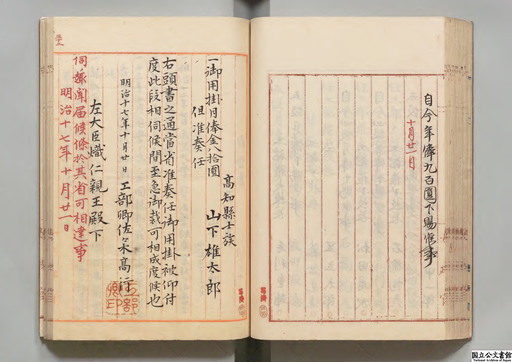 自今年俸九百圓下賜候事
十月廿一日
高知縣士族
山下雄太郎
一御用掛月俸金八拾圓
但准奏任
右頭書之通當省准奏任御用掛被仰付
度此段相伺候間至急御裁可相成度候也
明治十七年十月廿日 工部卿佐々木高行
左大臣熾仁親王殿下
伺之趣聞届候條於其省可相達事
明治十七年十月廿一日
国立公文書館
National Archives of Japan